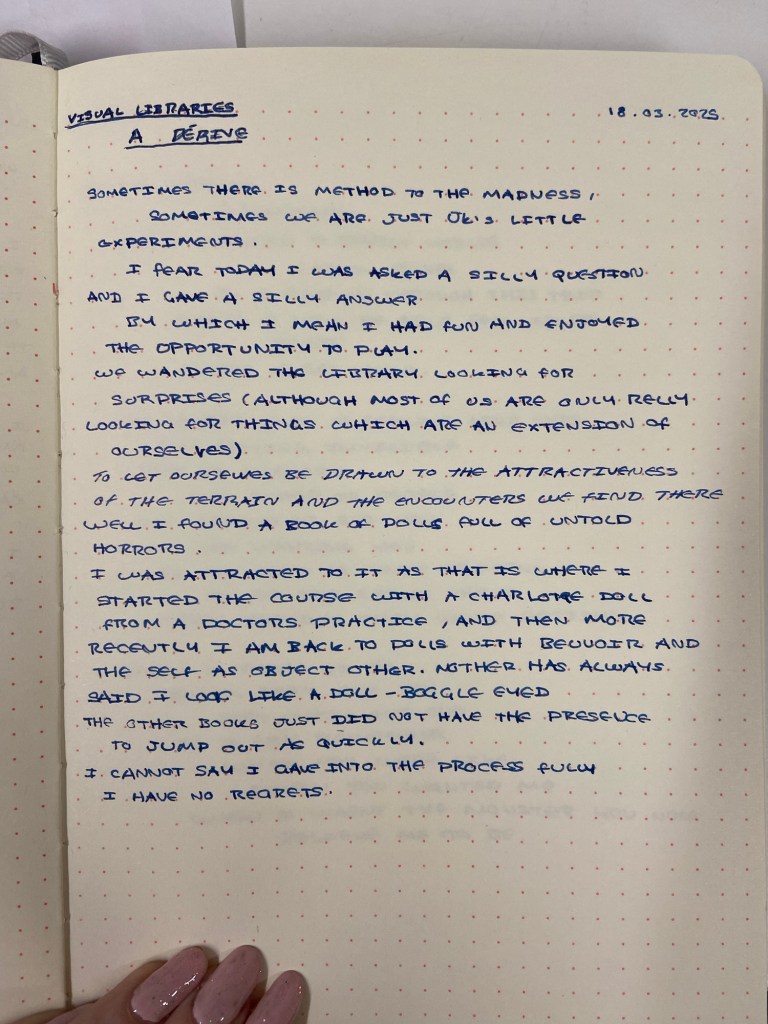 VISUAL LIBRARIES
18.03.2025
A DÉRIVE
SOMETIMES THERE IS METHOD TO THE MADNESS,
SOMETIMES WE ARE JUST LITTLE
EXPERIMENTS.
I FEAR TODAY I WAS ASKED A SILLY QUESTION
AND I GAVE A SILLY ANSWER
BY WHICH I MEAN I HAD FUN AND ENJOYED
THE OPPORTUNITY TO PLAY.
WE WANDERED THE LIBRARY LOOKING FOR
SURPRISES (ALTHOUGH MOST OF US ARE ONLY RELLY
LOOKING FOR THINGS WHICH ARE AN EXTENSION OF
OURSELVES)
TO LET OURSELVES BE DRAWN TO THE ATTRACTIVENESS
OF THE TERRAIN AND THE ENCOUNTERS WE FIND THERE
WELL I FOUND A BOOK OF DOLLS FULL OF UNTOLD
HORRORS.
I WAS ATTRACTED TO IT AS THAT IS WHERE I
STARTED THE COURSE WITH A CHARLOTTE DOLL
FROM A DOCTORS PRACTICE, AND THEN MORE
RECENTLY I AM BACK TO DOLLS WITH AND
THE SELF AS OBJECT OTHER. MOTHER HAS ALWAYS
SAID I LOOK LIKE A DOLL - BOGGLE EYED
THE OTHER BOOKS JUST DID NOT HAVE THE PRESENCE
TO JUMP OUT AS QUICKLY.
I CANNOT SAY I GAVE INTO THE PROCESS FULLY
I HAVE NO REGRETS.